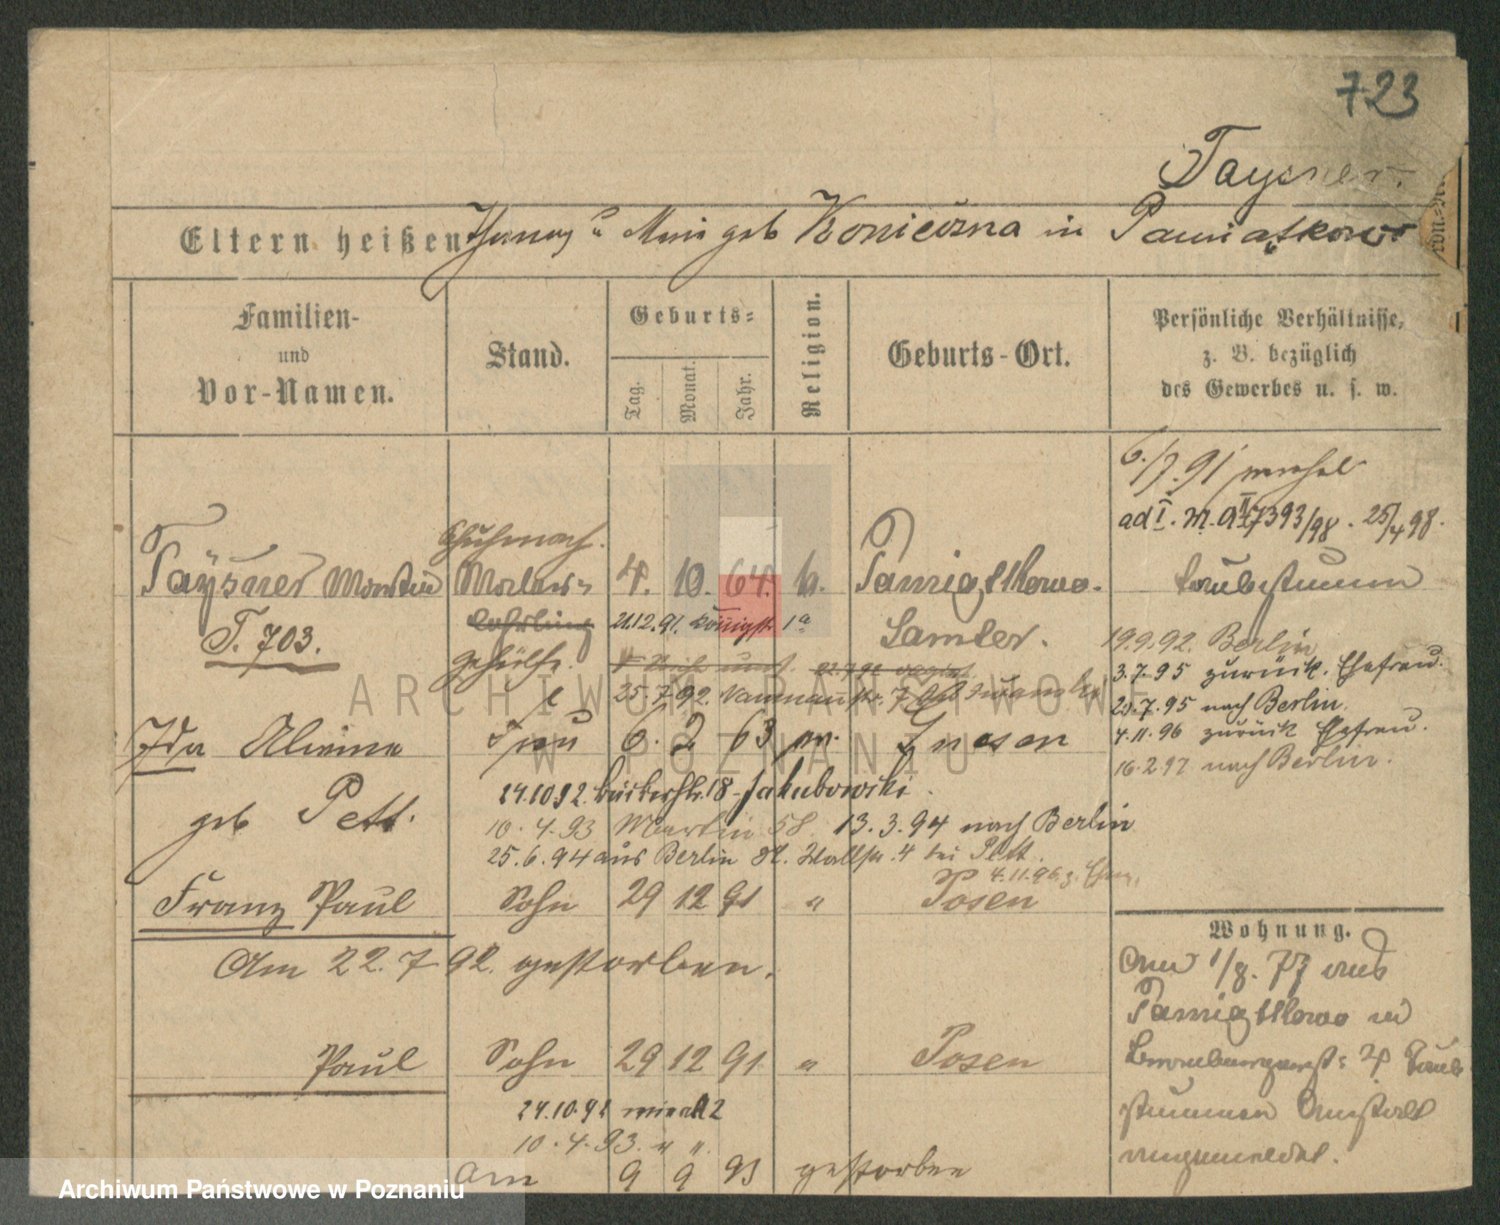 723
Taysner.
Eltern heißen Thomas u Marie geb Konieczna in Pamiątkowo
Familien-
und
Vor-Namen.
Stand.
Geburts-
Tag.
Monat.
Jahr.
Religion.
Geburts-Ort.
Persönliche Verhältnisse,
z. B. bezüglich
des Gewerbes u. s. w.
6./7. 91
ad I. M. 7393/98. 25/4 98.
Schuhmach.
Taysner Martin 4. 10. 64. k. Pamiątkowo. taubstumm
T. 703. Lehrling 21.12.91. Königstr. 1a Samter.
gehülfe.
25.7.92. Naumannstr. 7
19.9.92. Berlin
3.7.95 zurück. Ehefrau.
29.7.95 nach Berlin.
4.11.96 zurück Ehefrau.
16.2.97 nach Berlin.
Ida Alwine Frau 6. 2 63 Gnesen
geb Pett.
24.10.92. Bäckerstr. 18 Jakubowski.
10.4.93 Martin 58. 13.3.94 nach Berlin
25.6.94 aus Berlin Kl. Wallstr. 4 bei Pett.
4.11.96 z. Ehem.
Franz Paul Sohn 29 12 91 " Posen
Am 22.7.92. gestorben.
Wohnung.
Am 1/8. 77 aus
Pamiątkowo in
4 Taub-
stummen Anstalt
angemeldet.
Paul Sohn 29 12 91 " Posen
10.4.93. " ".
am 9 9 93 gestorben
ARCHIWUM PAŃSTWOWE
W POZNANIU
Archiwum Państwowe w Poznaniu